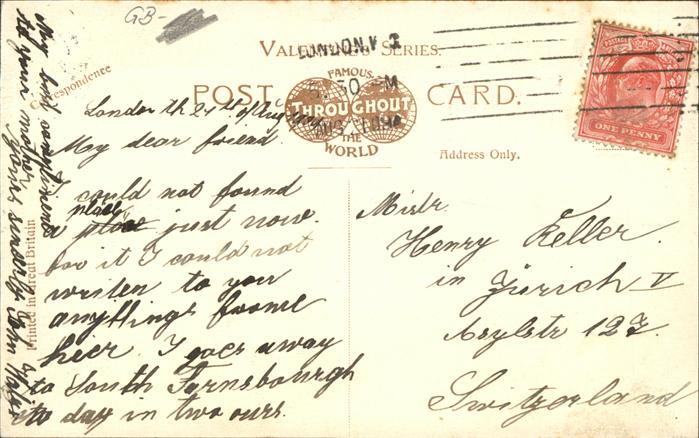 GB-
VALENTINE'S SERIES.
LONDON.
POST CARD.
FAMOUS
THROUGHOUT
THE
WORLD
POSTAGE
ONE PENNY
Correspondence
Address Only.
Printed in Great Britain
London th 24th of Aug
My dear friend.
I could not found
a place just now
for it I could not
writen to you
anythings frome
hier. I goes away
to South Farnsbourgh
to day in two ours.
My best compliments
to your mother
yours sincerly John
Mistr.
Henry Keller.
in Zürich V
Asylstr 127.
Switzerland